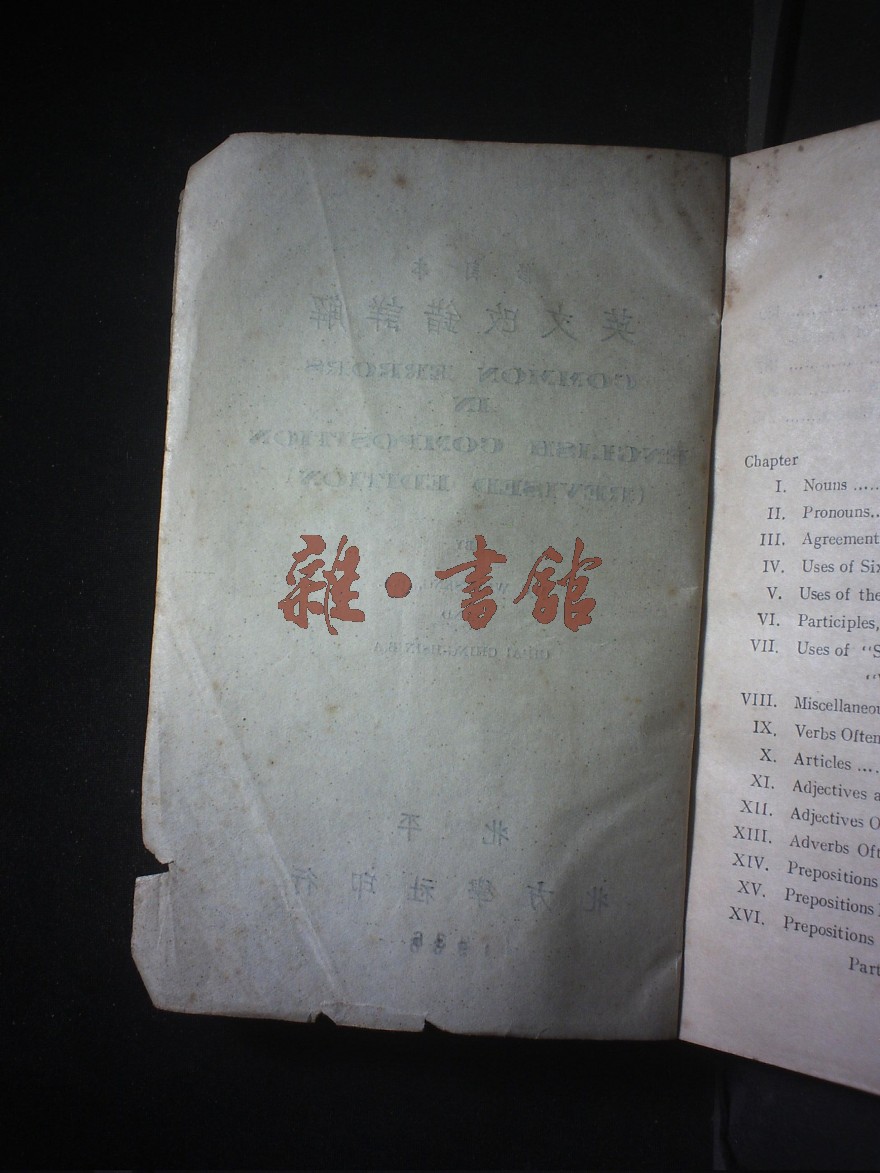 修訂本
英文改錯詳解
COMMON ERRORS
IN
ENGLISH COMPOSITION
(REVISED EDITION)
BY
雜·書館
北平
北方學社印行
Chapter
I. Nouns .....
II. Pronouns..
III. Agreement
IV. Uses of Six
V. Uses of the
VI. Participles,
VII. Uses of "S
VIII. Miscellaneou
IX. Verbs Often
X. Articles ....
XI. Adjectives a
XII. Adjectives O
XIII. Adverbs Oft
XIV. Prepositions
XV. Prepositions
XVI. Prepositions
Part